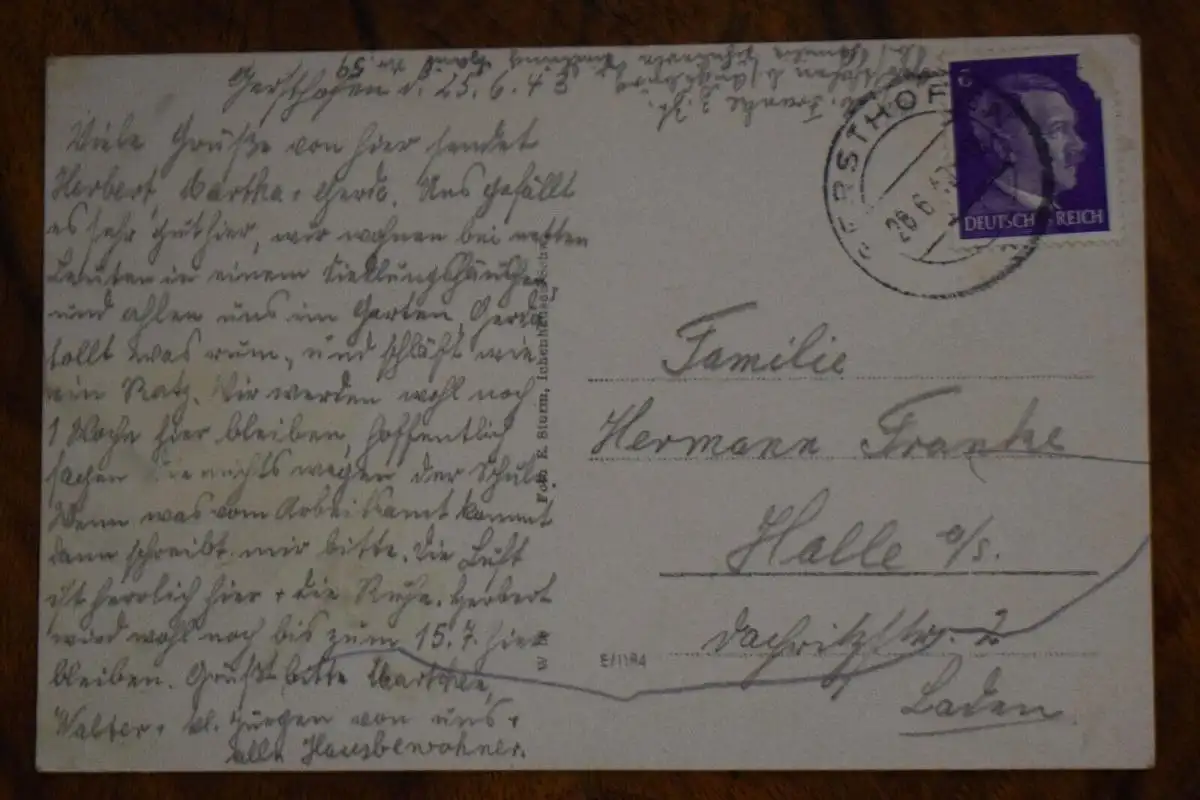 Gersthofen d. 25.6.43
Viele Grüße von hier sendet
Herbert, Martha + Gerd. Uns gefällt
es sehr gut hier, wir wohnen bei netten
Leuten in einem Siedlungshäuschen
und ahlen uns im Garten, Gerd
tollt was rum, und schläft wie
ein Ratz. Wir werden wohl noch
1 Woche hier bleiben, hoffentlich
sagen sie nichts wegen der Schule
Wenn was vom Arbeitsamt kommt
dann schreibt mir bitte. Die Luft
ist herrlich hier + die Ruhe. Herbert
wird wohl noch bis zum 15.7. hier
bleiben. Grüßt bitte
Walter + kl. Jürgen von uns +
alle Hausbewohner.
Foto E. Sturm, Ichenhausen
E/1184
GERSTHOF
6
DEUTSCHES REICH
Familie
Hermann Franke
Halle a/S.
Dachritzstr. 2
Laden
Franke z. Zt.
Gersthofen b/Augsburg
Nr. 59